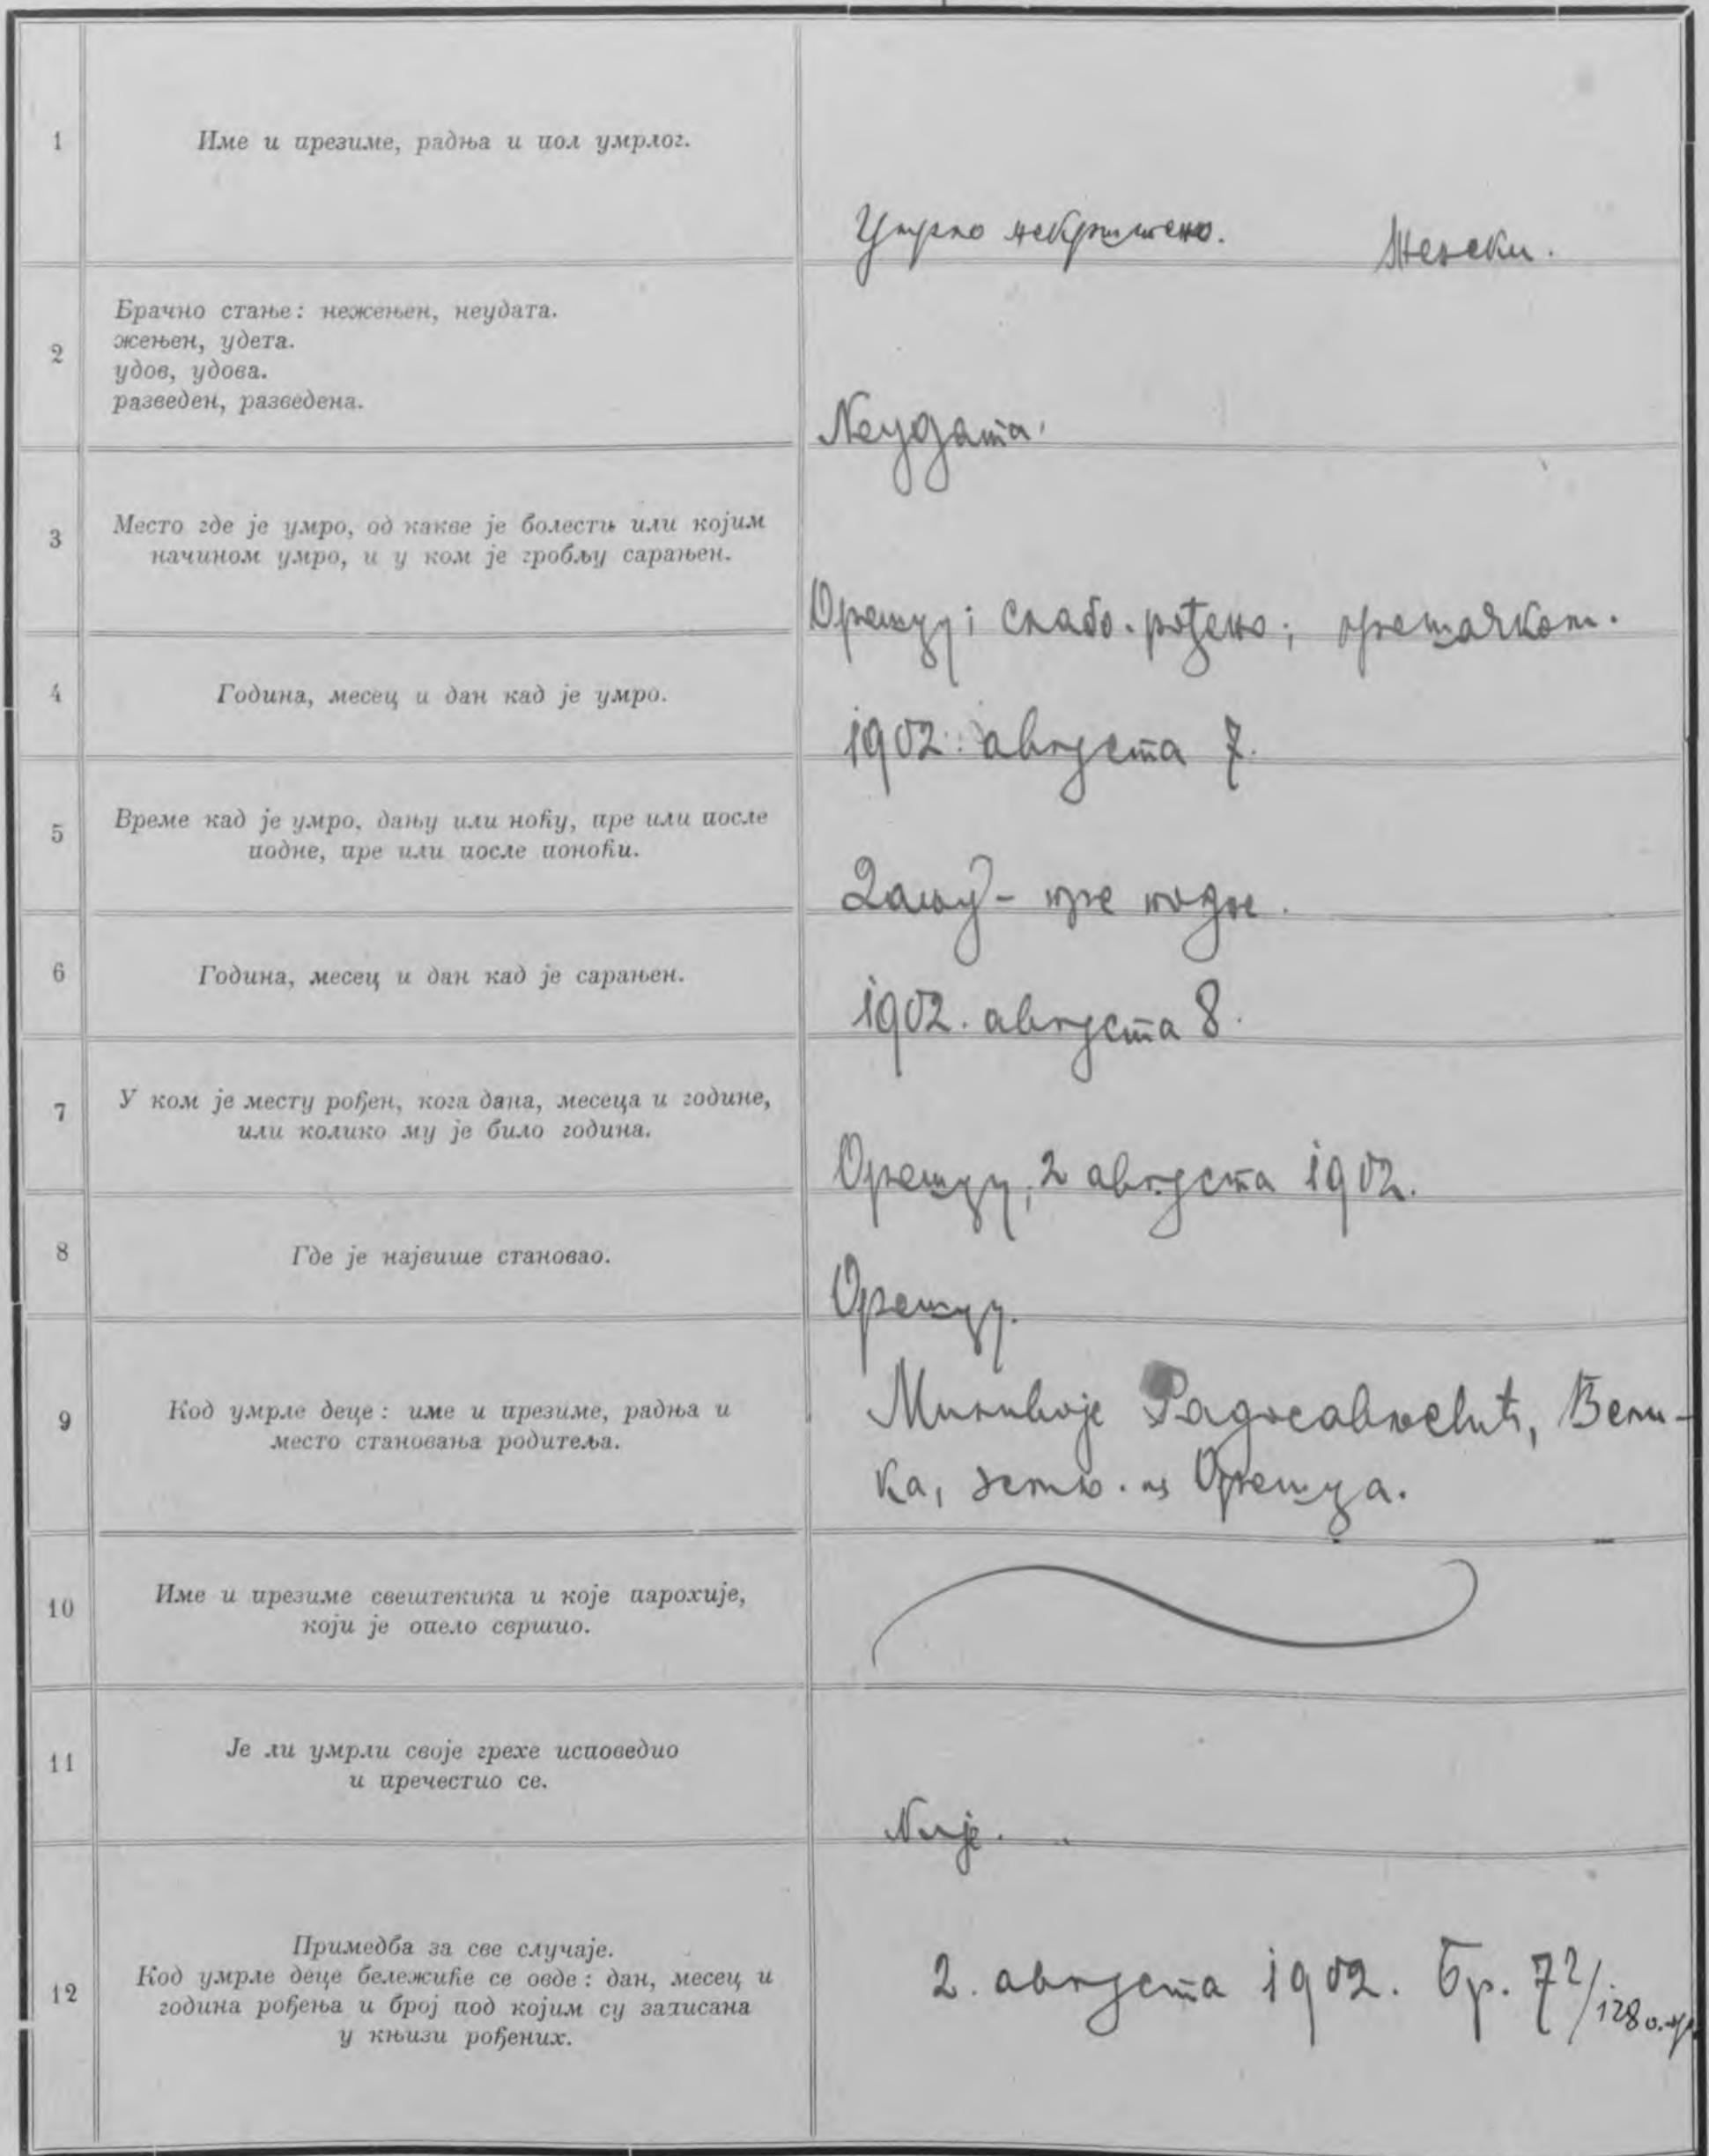 1
Име и презиме, радња и пол умрлог.
Умрло некрштено. Женски.
2
Брачно стање: нежењен, неудата.
жењен, удета.
удов, удова.
разведен, разведена.
Неудата.
3
Место где је умро, од какве је болести или којим
начином умро, и у ком је гробљу сарањен.
Орешцу; слабо рођено;
4
Година, месец и дан кад је умро.
1902. августа 7.
5
Време кад је умро, дању или ноћу, пре или после
подне, пре или после поноћи.
Дању - пре подне.
6
Година, месец и дан кад је сарањен.
1902. августа 8.
7
У ком је месту рођен, кога дана, месеца и године,
или колико му је било година.
Орешцу, 2 августа 1902.
8
Где је највише становао.
Орешцу.
9
Код умрле деце: име и презиме, радња и
место становања родитеља.
Миливоје Радосављевић, Вели-
ка, земљ. из Орешца.
10
Име и презиме свештекика и које парохије,
који је опело свршио.
11
Је ли умрли своје грехе исповедио
и пречестио се.
Није.
12
Примедба за све случаје.
Код умрле деце бележиће се овде: дан, месец и
година рођења и број под којим су записана
у књизи рођених.
2. августа 1902. Бр. 72/128